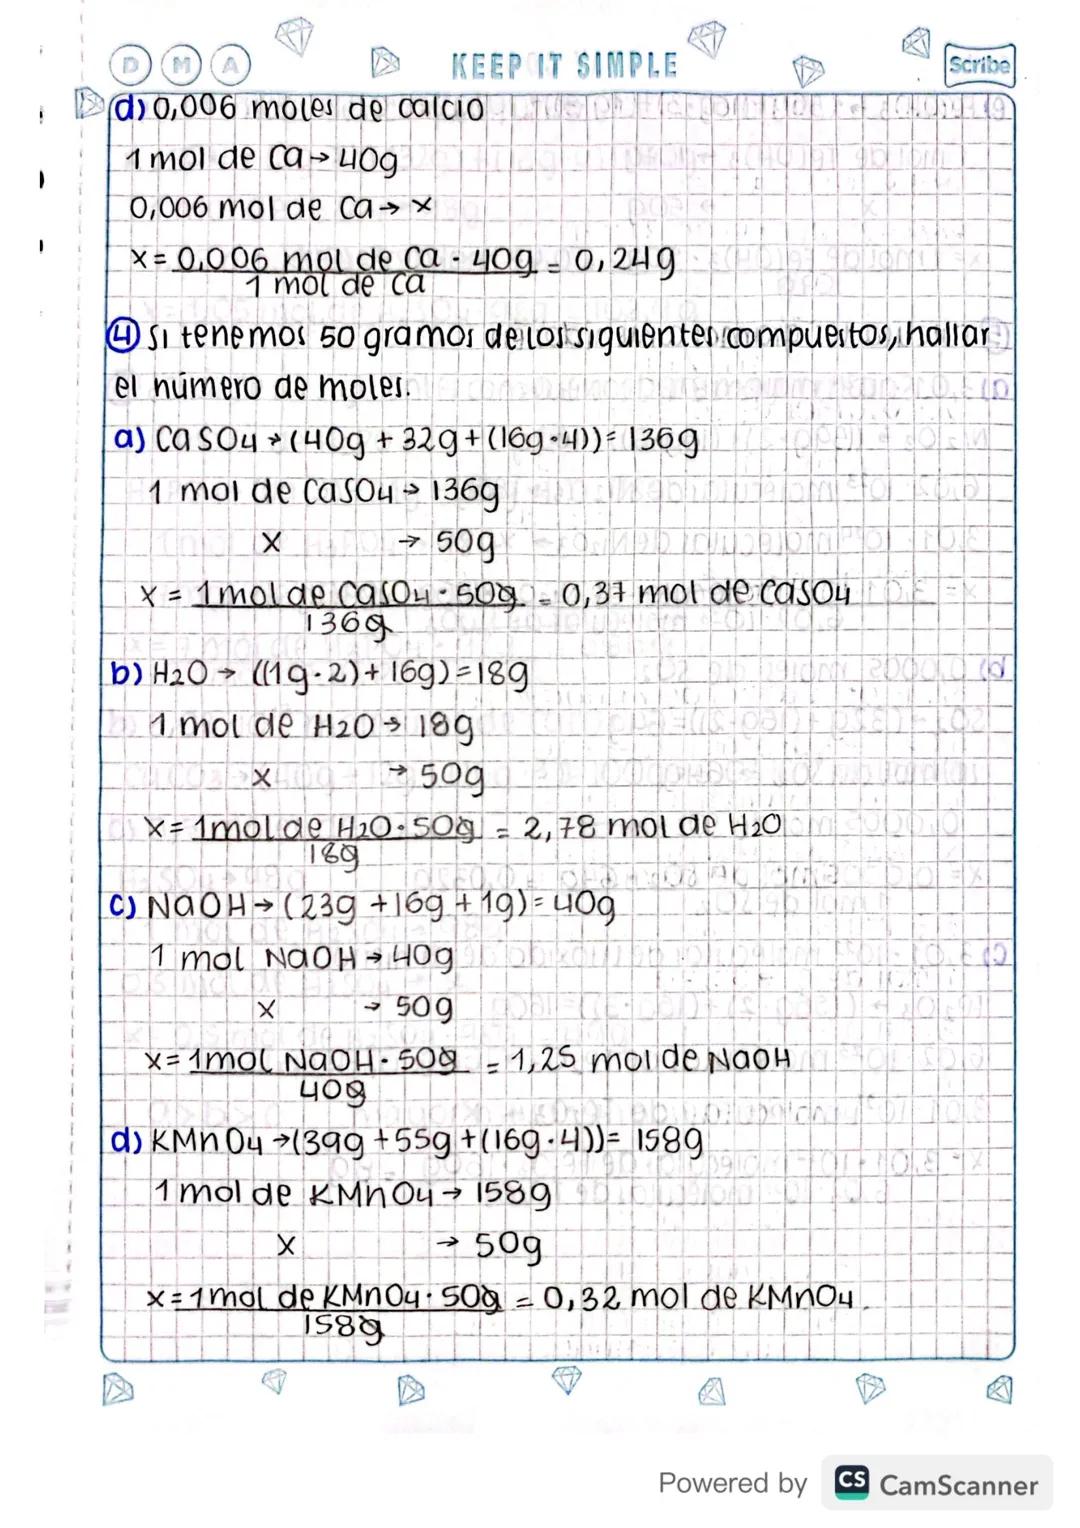 D M A KEEP IT SIMPLE Scribe
d) 0,006 moles de calcio
1 mol de Ca → 40g
0,006 mol de Ca → x
x = 0,006 mol de Ca · 40g = 0,24g
1 mol de Ca
4 Si tenemos 50 gramos de los siguientes compuestos, hallar
el número de moles.
a) CaSO4 → (40g + 32g + (16g·4)) = 136g
1 mol de CaSO4 → 136g
x → 50g
x = 1 mol de CaSO4 · 50g = 0,37 mol de CaSO4
136g
b) H2O → ((1g·2) + 16g) = 18g
1 mol de H2O → 18g
x → 50g
x = 1 mol de H2O · 50g = 2,78 mol de H2O
18g
c) NaOH → (23g + 16g + 1g) = 40g
1 mol NaOH → 40g
x → 50g
x = 1 mol NaOH · 50g = 1,25 mol de NaOH
40g
d) KMnO4 → (39g + 55g + (16g·4)) = 158g
1 mol de KMnO4 → 158g
x → 50g
x = 1 mol de KMnO4 · 50g = 0,32 mol de KMnO4.
158g
Powered by CS CamScanner